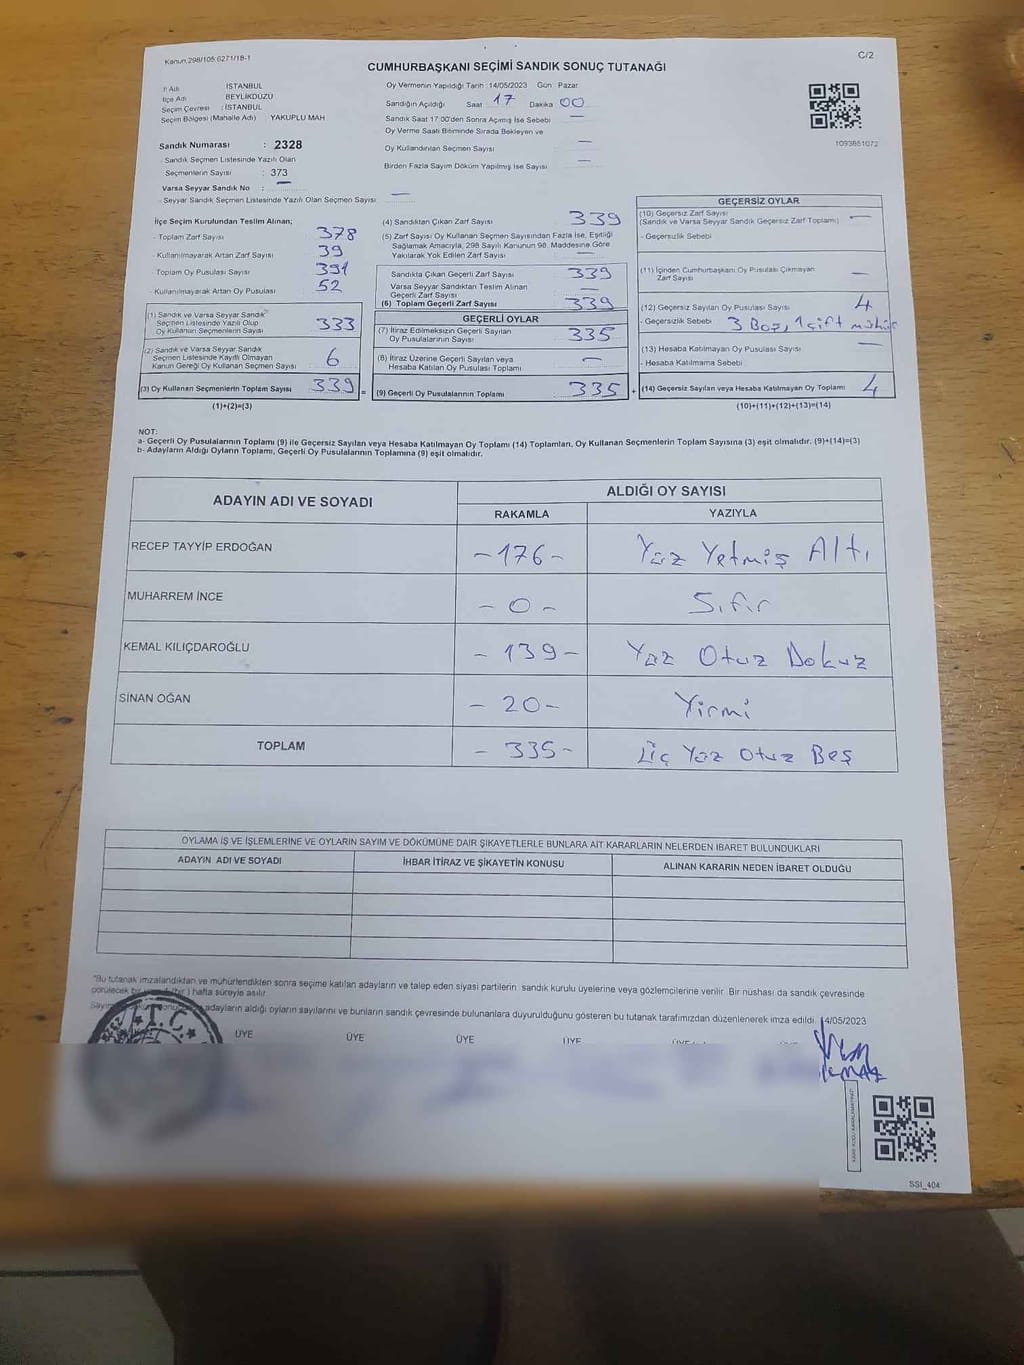 Kanun:298/105:6271/18-1
C/2
CUMHURBAŞKANI SEÇİMİ SANDIK SONUÇ TUTANAĞI
İl Adı : İSTANBUL
İlçe Adı : BEYLİKDÜZÜ
Seçim Çevresi : İSTANBUL
Seçim Bölgesi (Mahalle Adı) YAKUPLU MAH
Sandık Numarası : 2328
- Sandık Seçmen Listesinde Yazılı Olan
Seçmenlerin Sayısı : 373
Varsa Seyyar Sandık No : —
- Seyyar Sandık Seçmen Listesinde Yazılı Olan Seçmen Sayısı : —
Oy Vermenin Yapıldığı Tarih : 14/05/2023 Gün : Pazar
Sandığın Açıldığı Saat 17 Dakika 00
Sandık Saat 17:00'den Sonra Açımış İse Sebebi —
Oy Verme Saati Bitiminde Sırada Bekleyen ve
Oy Kullandırılan Seçmen Sayısı —
Birden Fazla Sayım Döküm Yapılmış İse Sayısı —
1093851072
İlçe Seçim Kurulundan Teslim Alınan;
- Toplam Zarf Sayısı 378
- Kullanılmayarak Artan Zarf Sayısı 39
- Toplam Oy Pusulası Sayısı 391
- Kullanılmayarak Artan Oy Pusulası 52
(1) Sandık ve Varsa Seyyar Sandık
Seçmen Listesinde Yazılı Olup
Oy Kullanan Seçmenlerin Sayısı 333
(2) Sandık ve Varsa Seyyar Sandık
Seçmen Listesinde Kayıtlı Olmayan
Kanun Gereği Oy Kullanan Seçmen Sayısı 6
(3) Oy Kullanan Seçmenlerin Toplam Sayısı 339 =
(1)+(2)=(3)
(4) Sandıktan Çıkan Zarf Sayısı 339
(5) Zarf Sayısı Oy Kullanan Seçmen Sayısından Fazla İse, Eşitliği
Sağlamak Amacıyla, 298 Sayılı Kanunun 98. Maddesine Göre
Yakılarak Yok Edilen Zarf Sayısı —
Sandıkta Çıkan Geçerli Zarf Sayısı 339
Varsa Seyyar Sandıktan Teslim Alınan
Geçerli Zarf Sayısı —
(6) Toplam Geçerli Zarf Sayısı 339
GEÇERLİ OYLAR
(7) İtiraz Edilmeksizin Geçerli Sayılan
Oy Pusulalarının Sayısı 335
(8) İtiraz Üzerine Geçerli Sayılan veya
Hesaba Katılan Oy Pusulası Toplamı —
(9) Geçerli Oy Pusulalarının Toplamı 335 +
GEÇERSİZ OYLAR
(10) Geçersiz Zarf Sayısı
(Sandık ve Varsa Seyyar Sandık Geçersiz Zarf Toplamı) —
- Geçersizlik Sebebi
(11) İçinden Cumhurbaşkanı Oy Pusulası Çıkmayan
Zarf Sayısı —
(12) Geçersiz Sayılan Oy Pusulası Sayısı 4
- Geçersizlik Sebebi 3 Boş, 1 çift mühür
(13) Hesaba Katılmayan Oy Pusulası Sayısı —
- Hesaba Katılmama Sebebi
(14) Geçersiz Sayılan veya Hesaba Katılmayan Oy Toplamı 4
(10)+(11)+(12)+(13)=(14)
NOT:
a- Geçerli Oy Pusulalarının Toplamı (9) ile Geçersiz Sayılan veya Hesaba Katılmayan Oy Toplamı (14) Toplamları, Oy Kullanan Seçmenlerin Toplam Sayısına (3) eşit olmalıdır. (9)+(14)=(3)
b- Adayların Aldığı Oyların Toplamı, Geçerli Oy Pusulalarının Toplamına (9) eşit olmalıdır.
ADAYIN ADI VE SOYADI
ALDIĞI OY SAYISI
RAKAMLA YAZIYLA
RECEP TAYYİP ERDOĞAN -176- Yüz Yetmiş Altı
MUHARREM İNCE -0- Sıfır
KEMAL KILIÇDAROĞLU -139- Yüz Otuz Dokuz
SİNAN OĞAN -20- Yirmi
TOPLAM -335- Üç Yüz Otuz Beş
OYLAMA İŞ VE İŞLEMLERİNE VE OYLARIN SAYIM VE DÖKÜMÜNE DAİR ŞİKAYETLERLE BUNLARA AİT KARARLARIN NELERDEN İBARET BULUNDUKLARI
ADAYIN ADI VE SOYADI İHBAR İTİRAZ VE ŞİKAYETİN KONUSU ALINAN KARARIN NEDEN İBARET OLDUĞU
"Bu tutanak imzalandıktan ve mühürlendikten sonra seçime katılan adayların ve talep eden siyasi partilerin sandık kurulu üyelerine veya gözlemcilerine verilir. Bir nüshası da sandık çevresinde
görülecek bir (bir) hafta süreyle asılır.
adayların aldığı oyların sayılarını ve bunların sandık çevresinde bulunanlara duyurulduğunu gösteren bu tutanak tarafımızdan düzenlenerek imza edildi. 14/05/2023
T.C.
ÜYE ÜYE ÜYE ÜYE
SSI_404